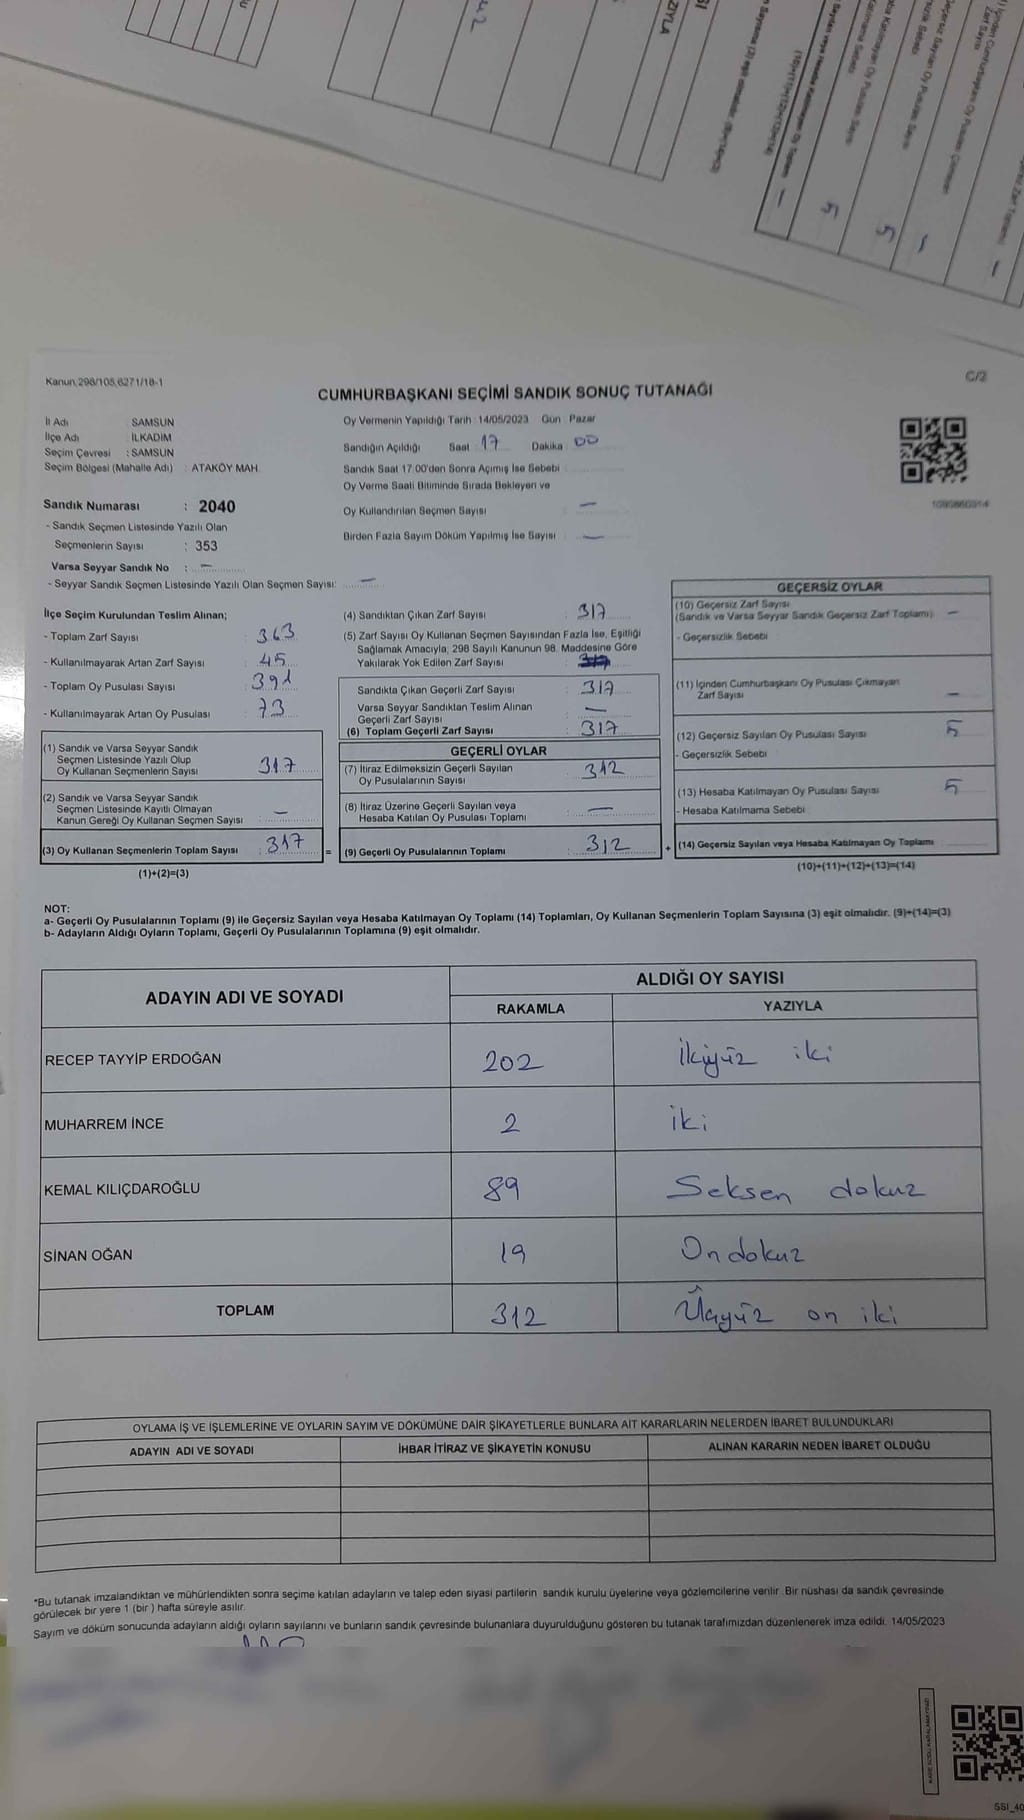 Kanun,298/105,6271/18-1
C/2
CUMHURBAŞKANI SEÇİMİ SANDIK SONUÇ TUTANAĞI
İl Adı : SAMSUN
İlçe Adı : İLKADIM
Seçim Çevresi : SAMSUN
Seçim Bölgesi (Mahalle Adı) : ATAKÖY MAH.
Sandık Numarası : 2040
- Sandık Seçmen Listesinde Yazılı Olan
Seçmenlerin Sayısı : 353
Varsa Seyyar Sandık No : —
- Seyyar Sandık Seçmen Listesinde Yazılı Olan Seçmen Sayısı: —
Oy Vermenin Yapıldığı Tarih : 14/05/2023 Gün : Pazar
Sandığın Açıldığı Saat 17 Dakika 00
Sandık Saat 17:00'den Sonra Açımış İse Sebebi
Oy Verme Saati Bitiminde Sırada Bekleyen ve
Oy Kullandırılan Seçmen Sayısı : —
Birden Fazla Sayım Döküm Yapılmış İse Sayısı : —
İlçe Seçim Kurulundan Teslim Alınan;
- Toplam Zarf Sayısı : 363
- Kullanılmayarak Artan Zarf Sayısı : 45
- Toplam Oy Pusulası Sayısı : 391
- Kullanılmayarak Artan Oy Pusulası : 73
(1) Sandık ve Varsa Seyyar Sandık
Seçmen Listesinde Yazılı Olup
Oy Kullanan Seçmenlerin Sayısı : 317
(2) Sandık ve Varsa Seyyar Sandık
Seçmen Listesinde Kayıtlı Olmayan
Kanun Gereği Oy Kullanan Seçmen Sayısı : —
(3) Oy Kullanan Seçmenlerin Toplam Sayısı : 317
(1)+(2)=(3)
(4) Sandıktan Çıkan Zarf Sayısı : 317
(5) Zarf Sayısı Oy Kullanan Seçmen Sayısından Fazla İse, Eşitliği
Sağlamak Amacıyla, 298 Sayılı Kanunun 98. Maddesine Göre
Yakılarak Yok Edilen Zarf Sayısı :
Sandıkta Çıkan Geçerli Zarf Sayısı : 317
Varsa Seyyar Sandıktan Teslim Alınan
Geçerli Zarf Sayısı : —
(6) Toplam Geçerli Zarf Sayısı : 317
GEÇERLİ OYLAR
(7) İtiraz Edilmeksizin Geçerli Sayılan
Oy Pusulalarının Sayısı : 312
(8) İtiraz Üzerine Geçerli Sayılan veya
Hesaba Katılan Oy Pusulası Toplamı : —
= (9) Geçerli Oy Pusulalarının Toplamı : 312
GEÇERSİZ OYLAR
(10) Geçersiz Zarf Sayısı
(Sandık ve Varsa Seyyar Sandık Geçersiz Zarf Toplamı): —
- Geçersizlik Sebebi
(11) İçinden Cumhurbaşkanı Oy Pusulası Çıkmayan
Zarf Sayısı —
(12) Geçersiz Sayılan Oy Pusulası Sayısı 5
- Geçersizlik Sebebi
(13) Hesaba Katılmayan Oy Pusulası Sayısı 5
- Hesaba Katılmama Sebebi
+ (14) Geçersiz Sayılan veya Hesaba Katılmayan Oy Toplamı
(10)+(11)+(12)+(13)=(14)
NOT:
a- Geçerli Oy Pusulalarının Toplamı (9) ile Geçersiz Sayılan veya Hesaba Katılmayan Oy Toplamı (14) Toplamları, Oy Kullanan Seçmenlerin Toplam Sayısına (3) eşit olmalıdır. (9)+(14)=(3)
b- Adayların Aldığı Oyların Toplamı, Geçerli Oy Pusulalarının Toplamına (9) eşit olmalıdır.
ADAYIN ADI VE SOYADI ALDIĞI OY SAYISI
RAKAMLA YAZIYLA
RECEP TAYYİP ERDOĞAN 202 İkiyüz iki
MUHARREM İNCE 2 iki
KEMAL KILIÇDAROĞLU 89 Seksen dokuz
SİNAN OĞAN 19 On dokuz
TOPLAM 312 Üçyüz on iki
OYLAMA İŞ VE İŞLEMLERİNE VE OYLARIN SAYIM VE DÖKÜMÜNE DAİR ŞİKAYETLERLE BUNLARA AİT KARARLARIN NELERDEN İBARET BULUNDUKLARI
ADAYIN ADI VE SOYADI İHBAR İTİRAZ VE ŞİKAYETİN KONUSU ALINAN KARARIN NEDEN İBARET OLDUĞU
*Bu tutanak imzalandıktan ve mühürlendikten sonra seçime katılan adayların ve talep eden siyasi partilerin sandık kurulu üyelerine veya gözlemcilerine verilir. Bir nüshası da sandık çevresinde
görülecek bir yere 1 (bir ) hafta süreyle asılır.
Sayım ve döküm sonucunda adayların aldığı oyların sayılarını ve bunların sandık çevresinde bulunanlara duyurulduğunu gösteren bu tutanak tarafımızdan düzenlenerek imza edildi. 14/05/2023